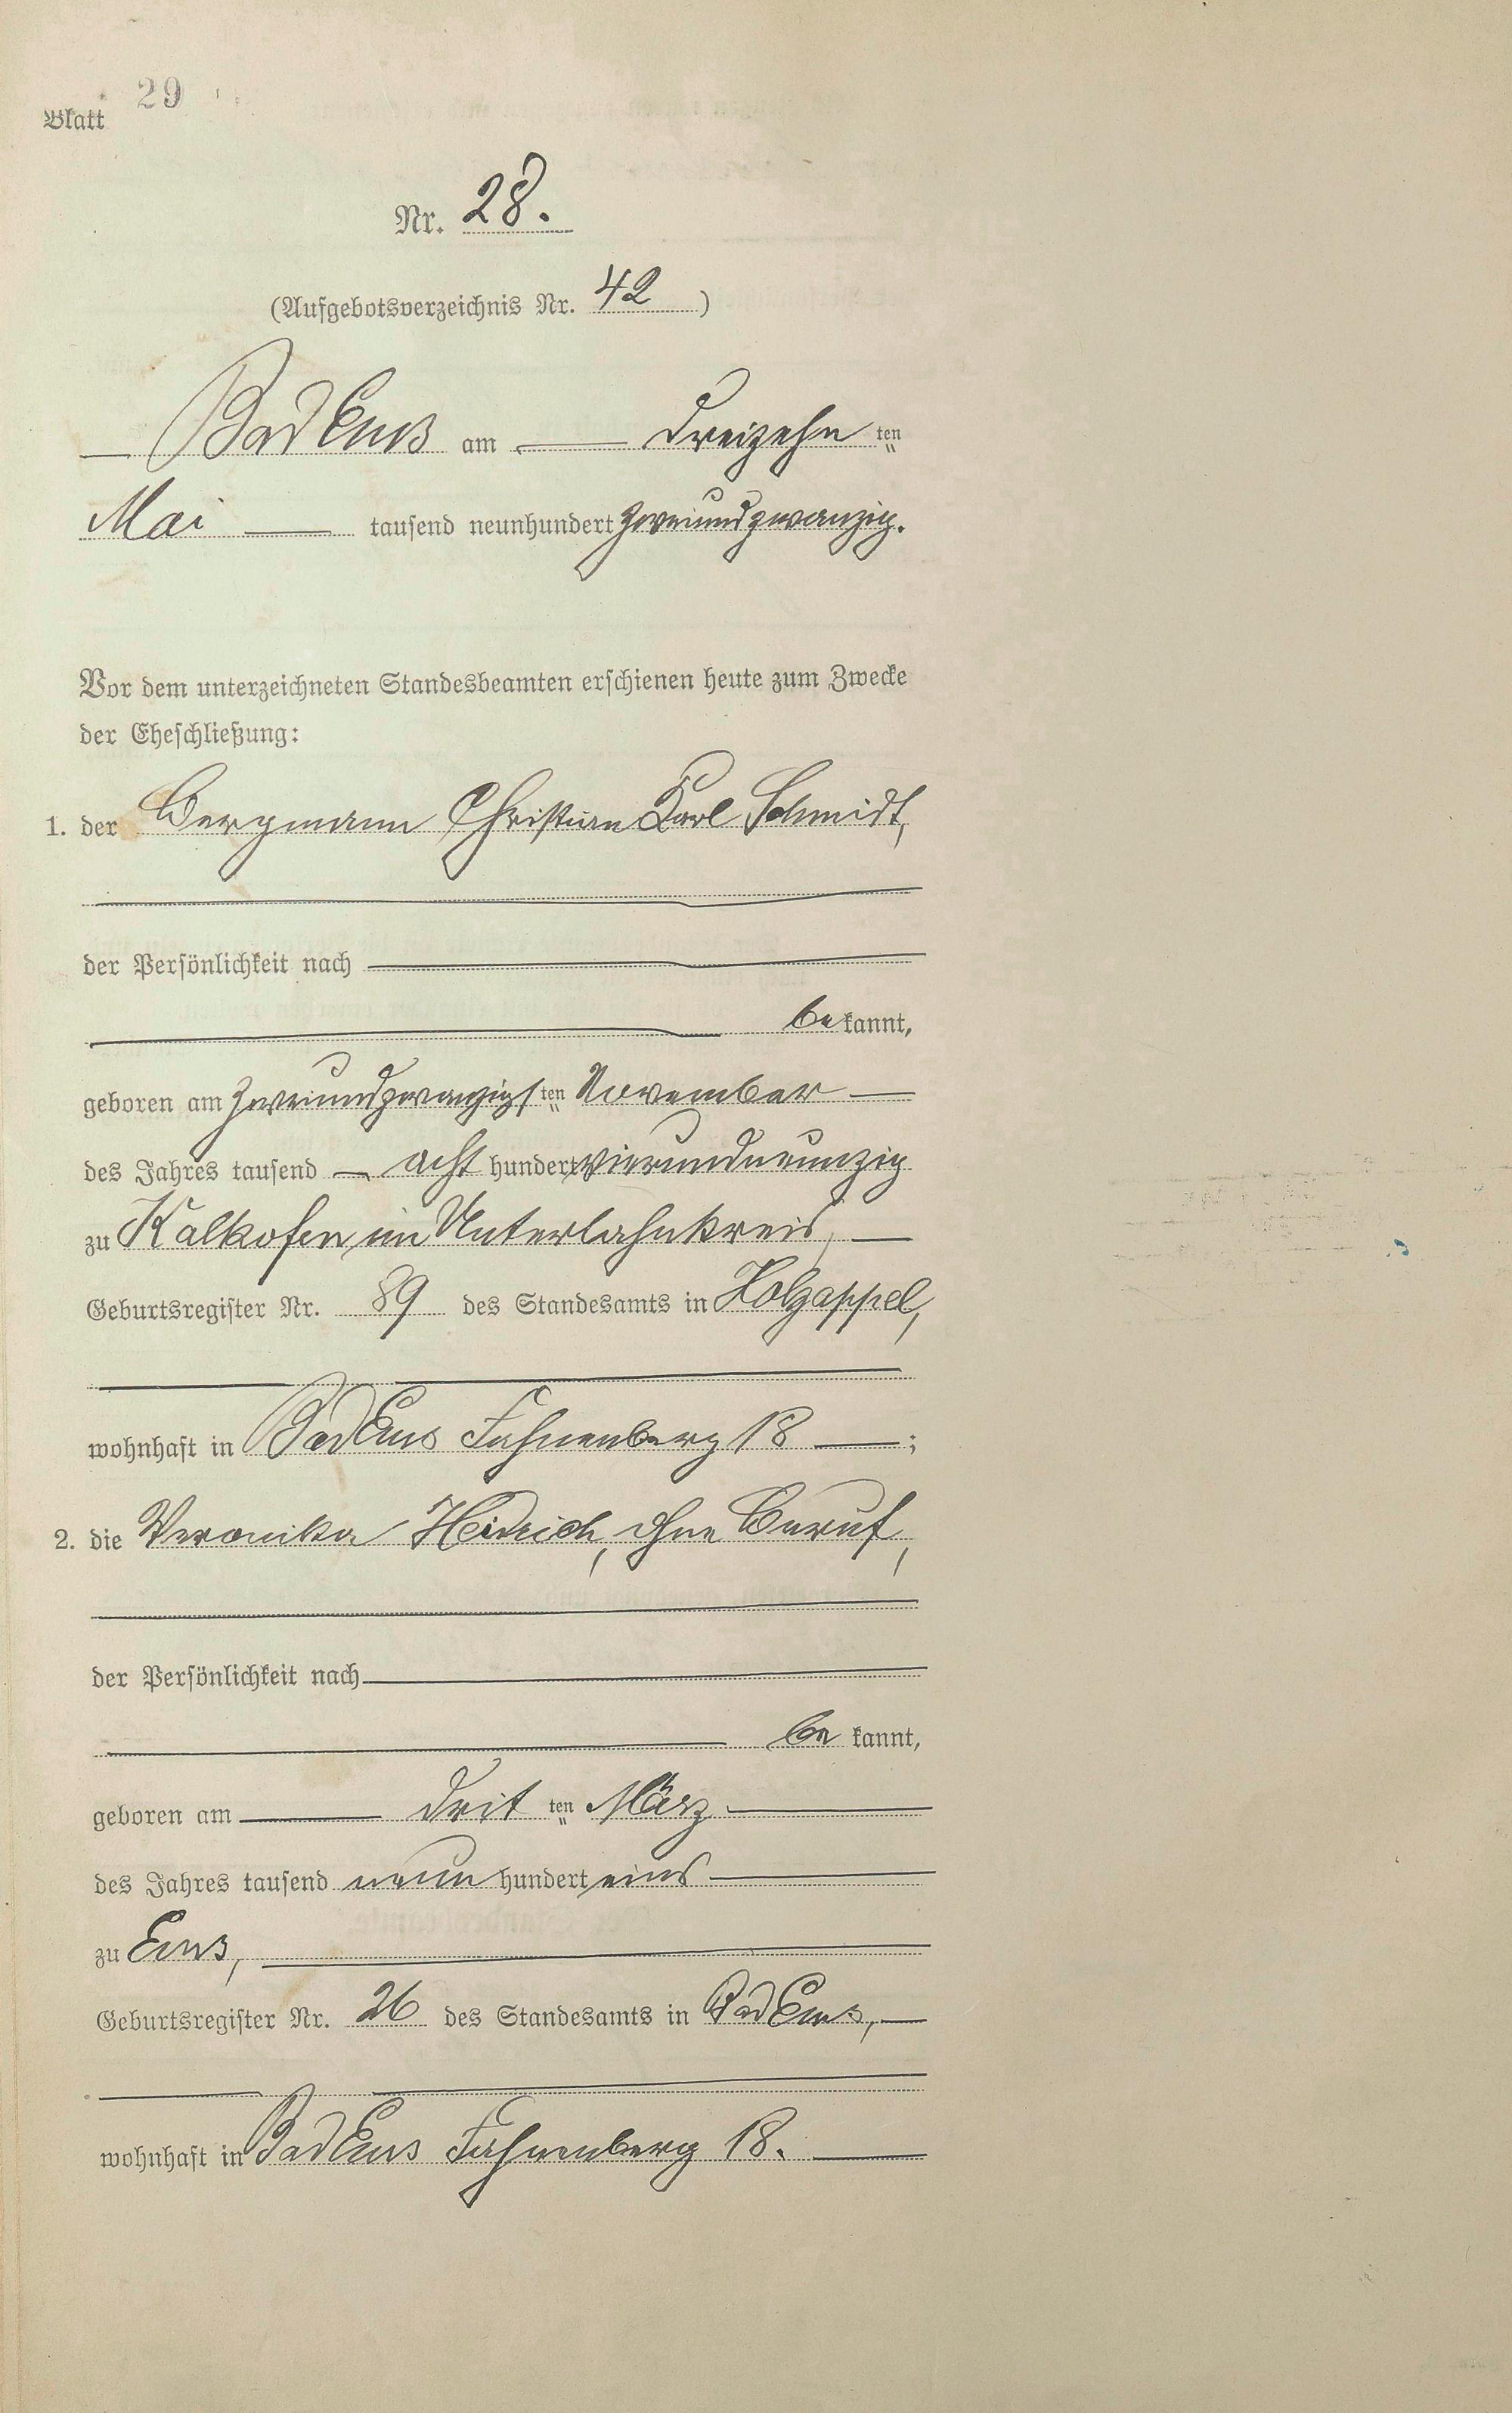 Blatt 29
Nr. 28.
(Aufgebotsverzeichnis Nr. 42)
Bad Ems am dreizehn ten
Mai tausend neunhundert zweiundzwanzig.
Vor dem unterzeichneten Standesbeamten erschienen heute zum Zwecke
der Eheschließung:
1. der Bergmann Christian Karl Schmidt,
der Persönlichkeit nach
be kannt,
geboren am zweiundzwanzigs ten November
des Jahres tausend acht hundert vierundneunzig
zu Kalkofen im Unterlahnkreis,
Geburtsregister Nr. 89 des Standesamts in Holzappel,
wohnhaft in Bad Ems Fahnenberg 18 ;
2. die Veronika Heinrich, ohne Beruf,
der Persönlichkeit nach
be kannt,
geboren am drit ten März
des Jahres tausend neun hundert eins
zu Ems,
Geburtsregister Nr. 26 des Standesamts in Bad Ems,
wohnhaft in Bad Ems Fahnenberg 18.